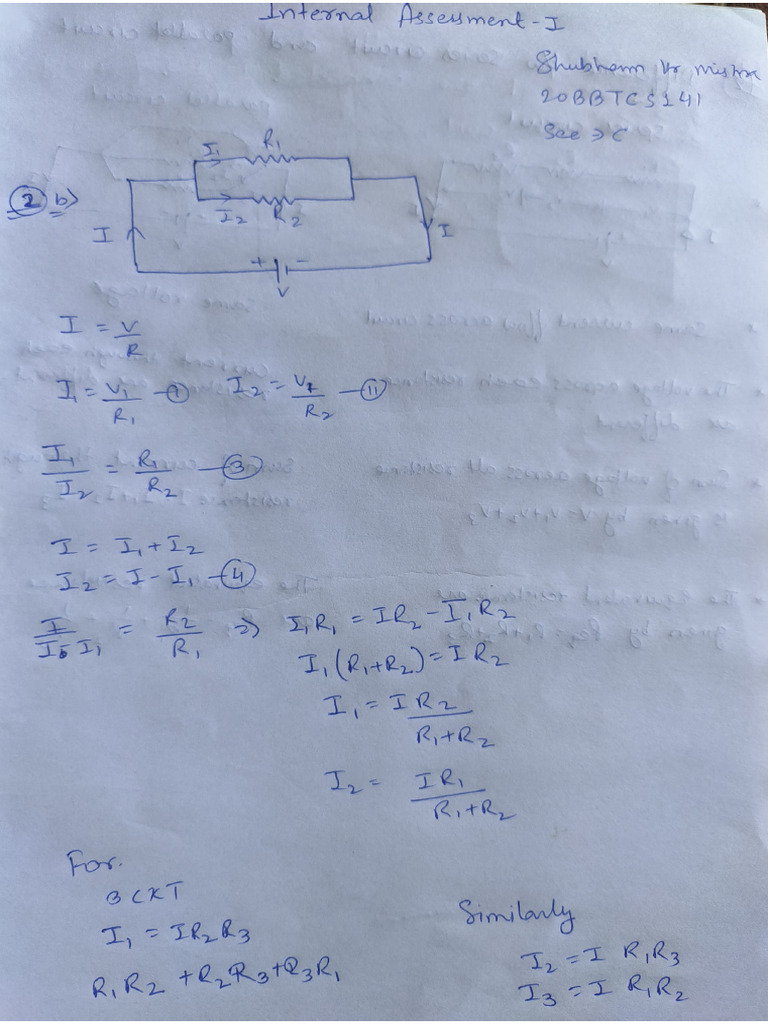 Internal Assessment - I
Shubham Kr Mishra
20BBTCS141
Sec → C
② b)
I₁ R₁
I₂ R₂
I I
+ -
V
I = V/R
I₁ = V₁/R₁ - ① I₂ = V₂/R₂ - ⑪
I₁/I₂ = R₁/R₂ - ③
I = I₁ + I₂
I₂ = I - I₁ - ④
= R₂/R₁ ⇒ I₁R₁ = IR₂ - I₁R₂
I₁(R₁+R₂) = I R₂
I₁ = I R₂/R₁+R₂
I₂ = I R₁/R₁+R₂
For
3 CKT
I₁ = IR₂R₃
R₁R₂ + R₂R₃ + R₃R₁
Similarly
I₂ = I R₁R₃
I₃ = I R₁R₂